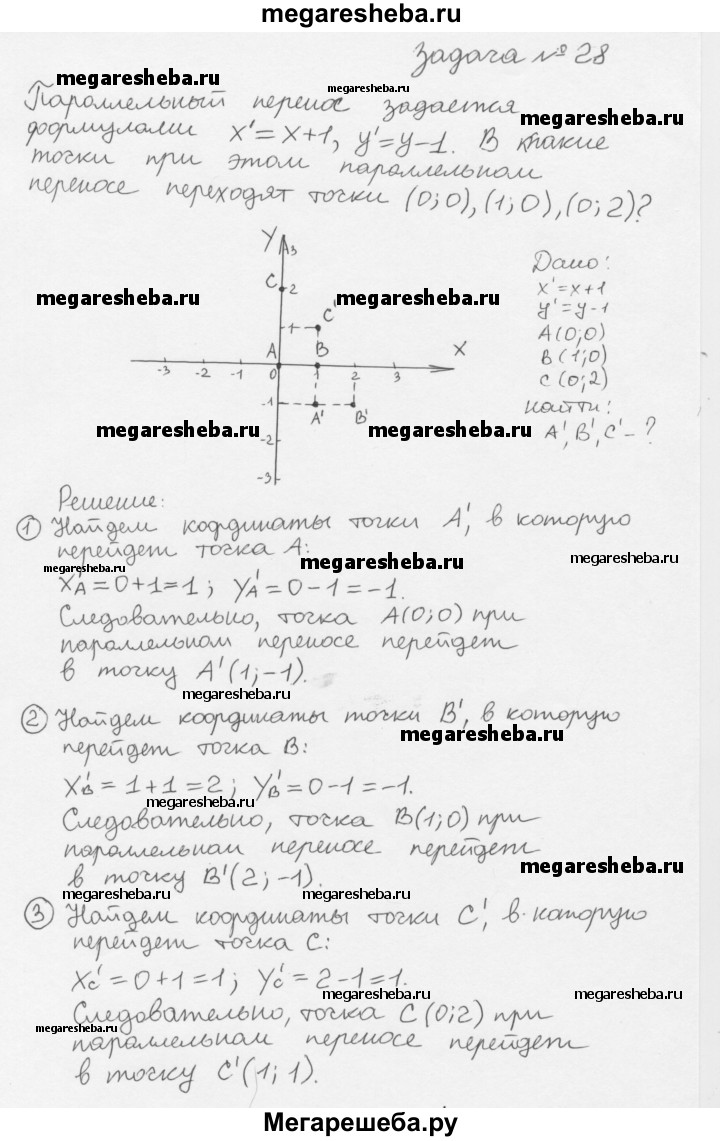 megaresheba.ru
Задача № 28
megaresheba.ru
megaresheba.ru
Параллельный перенос задается
megaresheba.ru
формулами x'=x+1, y'=y-1. В какие
точки при этом параллельном
переносе переходят точки (0;0), (1;0), (0;2)?
Y
3
C
2
megaresheba.ru
C'
megaresheba.ru
1
A
B
X
-3 -2 -1 0 1 2 3
-1
A' B'
megaresheba.ru
megaresheba.ru
-2
-3
Дано:
x'=x+1
y'=y-1
A(0;0)
B(1;0)
C(0;2)
Найти:
A', B', C' - ?
Решение:
① Найдем координаты точки A', в которую
перейдет точка A:
megaresheba.ru
megaresheba.ru
megaresheba.ru
X'A=0+1=1; Y'A=0-1=-1.
Следовательно, точка A(0;0) при
параллельном переносе перейдет
в точку A'(1;-1).
megaresheba.ru
② Найдем координаты точки B', в которую
megaresheba.ru
перейдет точка B:
X'B=1+1=2; Y'B=0-1=-1.
megaresheba.ru
Следовательно, точка B(1;0) при
параллельном переносе перейдет
megaresheba.ru
в точку B'(2;-1).
megaresheba.ru
megaresheba.ru
③ Найдем координаты точки C', в которую
перейдет точка C:
X'C=0+1=1; Y'C=2-1=1.
megaresheba.ru
megaresheba.ru
Следовательно, точка C(0;2) при
megaresheba.ru
параллельном переносе перейдет
в точку C'(1;1).
Мегарешеба.ру